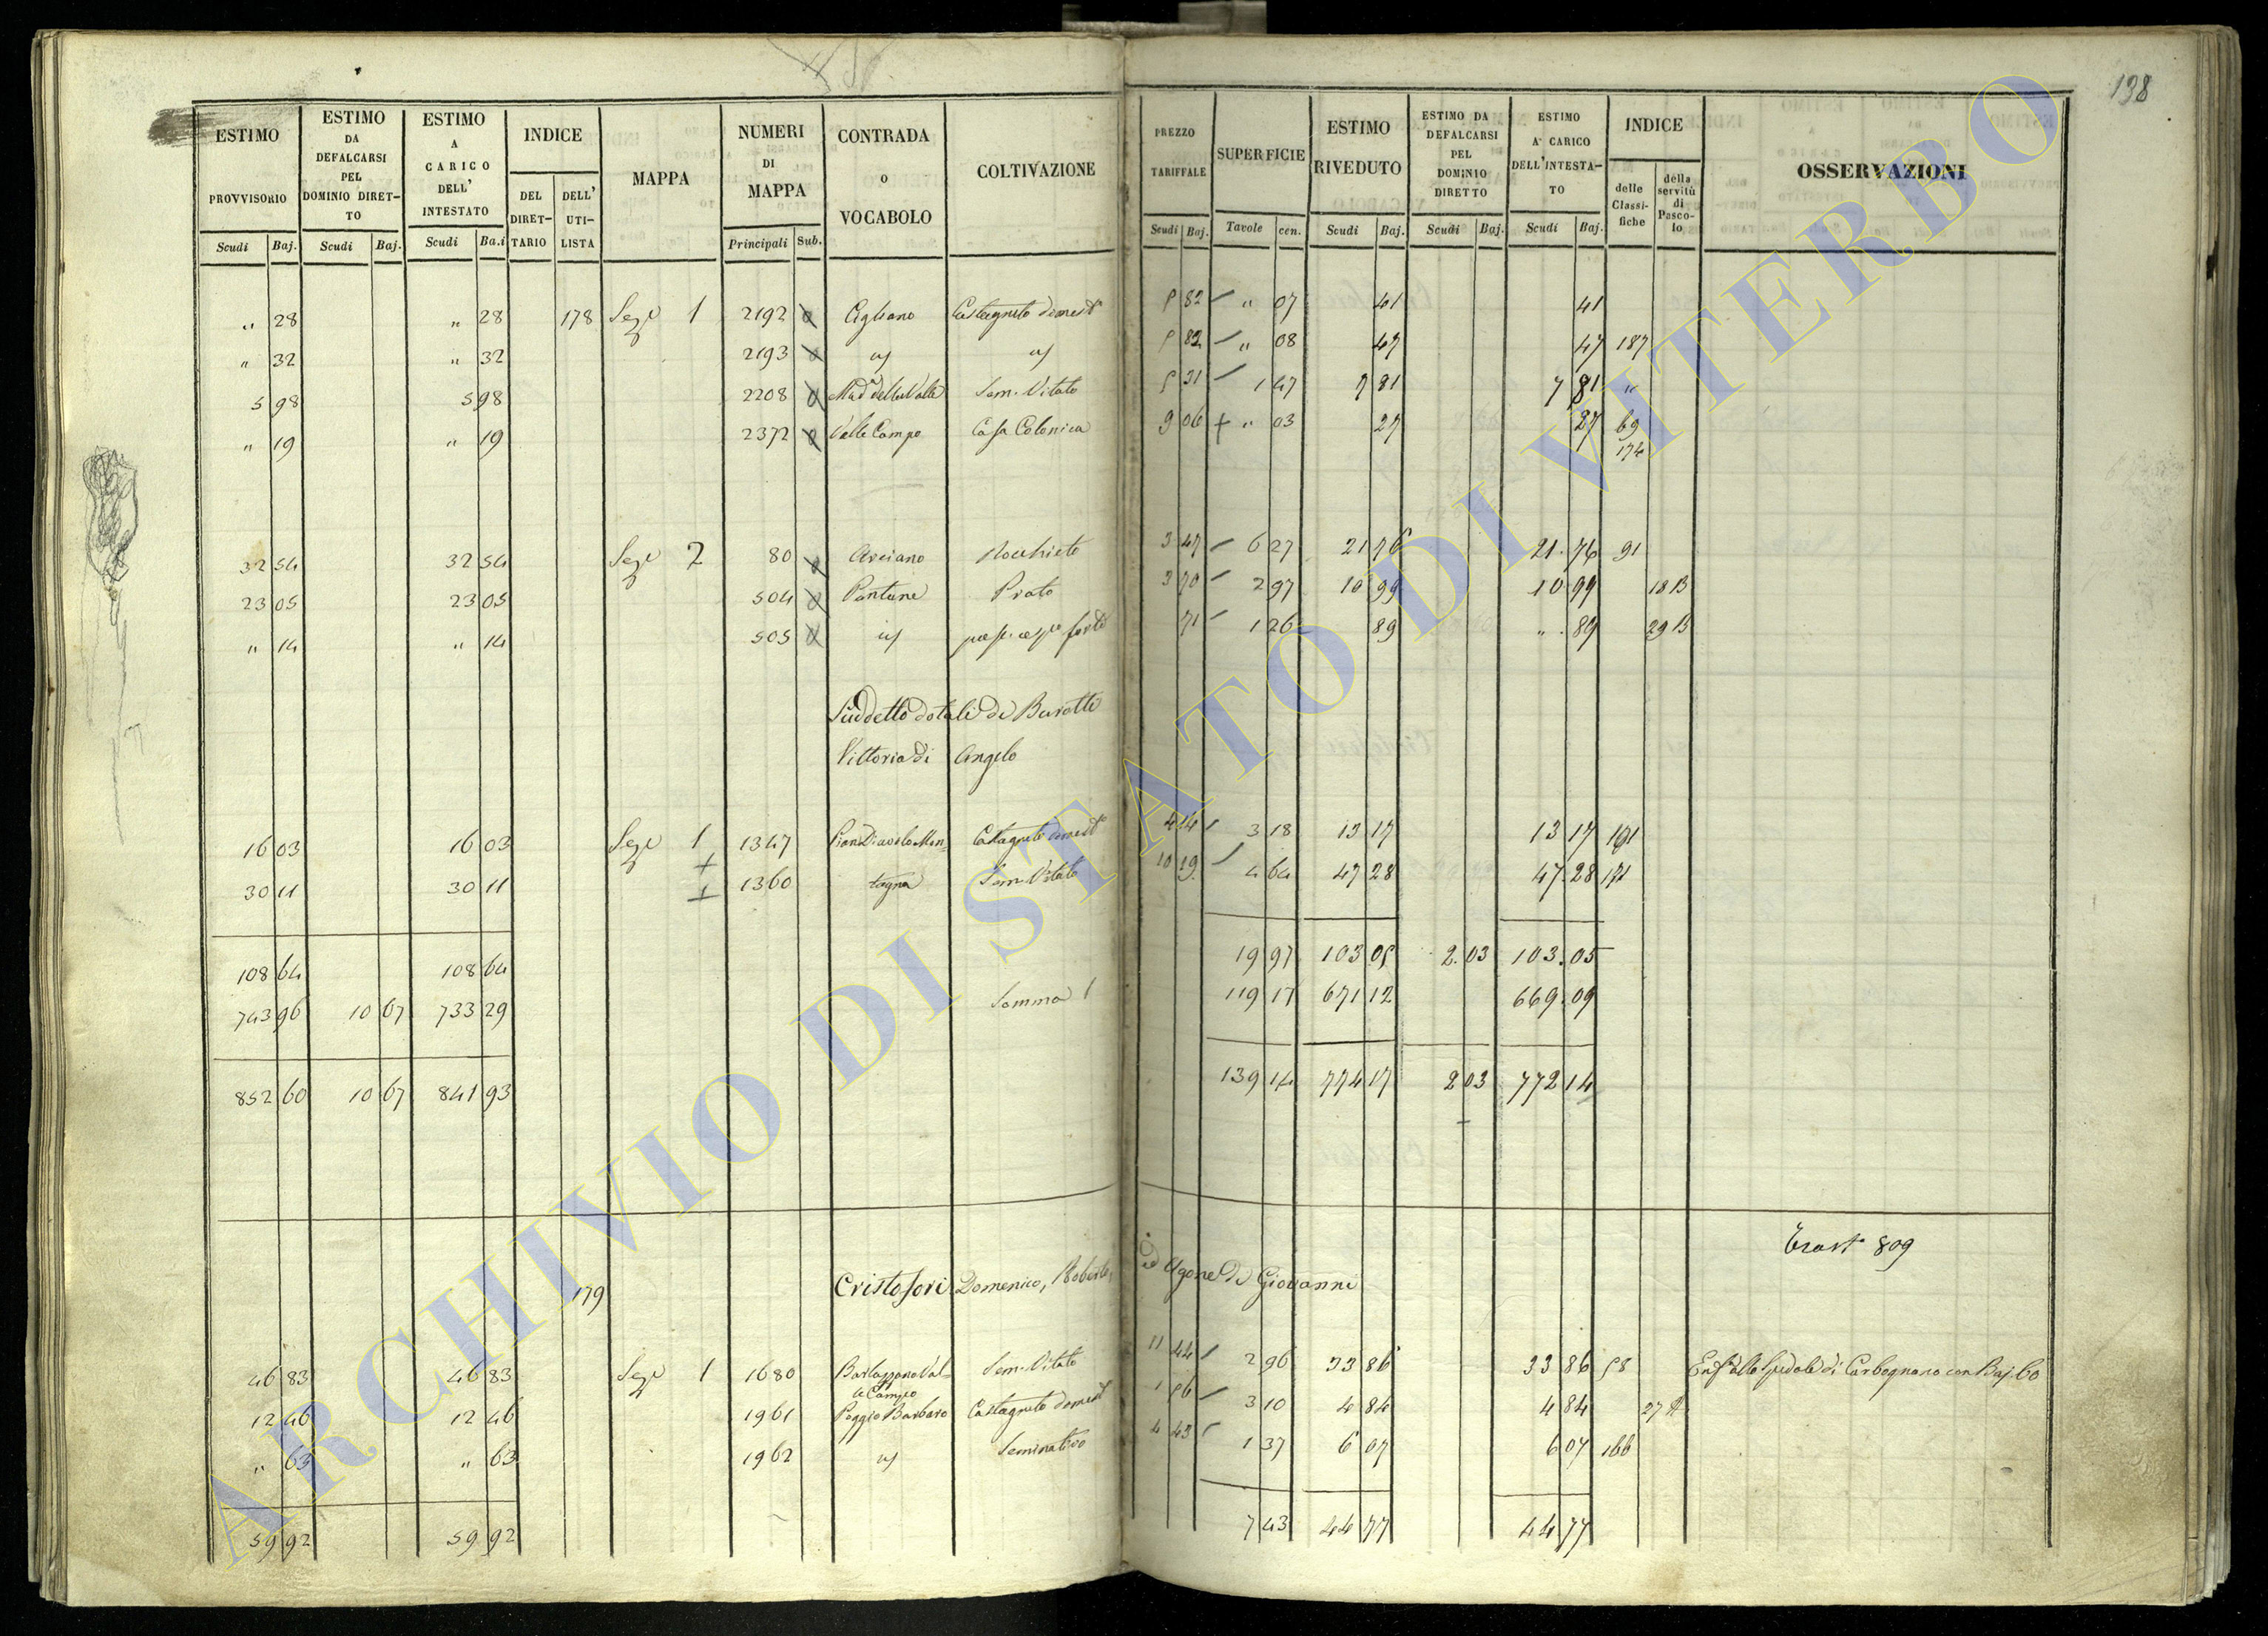 138
ESTIMO PROVVISORIO | ESTIMO DA DEFALCARSI PEL DOMINIO DIRETTO | ESTIMO A CARICO DELL' INTESTATO | INDICE | MAPPA | NUMERI DI MAPPA | CONTRADA o VOCABOLO | COLTIVAZIONE | PREZZO TARIFFALE | SUPERFICIE | ESTIMO RIVEDUTO | ESTIMO DA DEFALCARSI PEL DOMINIO DIRETTO | ESTIMO A' CARICO DELL'INTESTATO | INDICE | OSSERVAZIONI
DEL DIRETTARIO | DELL' UTILISTA | delle Classifiche | della servitù di Pascolo
Scudi | Baj. | Scudi | Baj. | Scudi | Ba.i | Principali | Sub. | Scudi | Baj. | Tavole | cen. | Scudi | Baj. | Scudi | Baj. | Scudi | Baj.
" 28 | " 28 | 178 | Sez.e 1 | 2192 | Cigliano | Castagneto domest.o | 5 82 | " 07 | 41 | 41
" 32 | " 32 | 2193 | id | id | 5 82 | " 08 | 47 | 47 | 187
5 98 | 5 98 | 2208 | Mad.a della Valle | Sem. Vitato | 5 31 | 1 47 | 7 81 | 7 81 | "
" 19 | " 19 | 2372 | Valle Campo | Casa Colonica | 9 06 | " 03 | 27 | 27 | 69
174
32 54 | 32 54 | Sez.e 2 | 80 | Arciano | Nocchieto | 3 47 | 6 27 | 21 76 | 21.76 | 91
23 05 | 23 05 | 504 | Pantane | Prato | 3 70 | 2 97 | 10 99 | 10 99 | 18 B
" 14 | " 14 | 505 | id | forte | 71 | 1 26 | 89 | " 89 | 29 B
Suddetto dotali di Buratti
Vittoria di Angelo
16 03 | 16 03 | Sez.e 1 | 1347 | Piano Diavolo Mon= | Castagneto domest.o | 4 14 | 3 18 | 13 17 | 13 17 | 191
30 11 | 30 11 | 1360 | tagna | Sem. Vitato | 10 19 | 4 64 | 47 28 | 47.28 | 171
108 64 | 108 64 | 19 97 | 103 05 | 2.03 | 103.05
743 96 | 10 67 | 733 29 | Somma | 119 17 | 671 12 | 669.09
852 60 | 10 67 | 841 93 | 139 14 | 774 17 | 2 03 | 772 14
Trast. 809
179 | Cristofori Domenico, Roberto, ed Agone di Giovanni
46 83 | 46 83 | Sez.e 1 | 1680 | Barlozzano Val= | Sem. Vitato | 11 44 | 2 96 | 33 86 | 33 86 | 58 | Enf.a allo Spedale di Carbognano con Baj. 60
le Campo
12 46 | 12 46 | 1961 | Poggio Barbaro | Castagneto domest.o | 1 56 | 3 10 | 4 84 | 4 84 | 27 A
" 63 | " 63 | 1962 | id | Seminativo | 4 43 | 1 37 | 6 07 | 6 07 | 166
59 92 | 59 92 | 7 43 | 44 77 | 44 77
ARCHIVIO DI STATO DI VITERBO